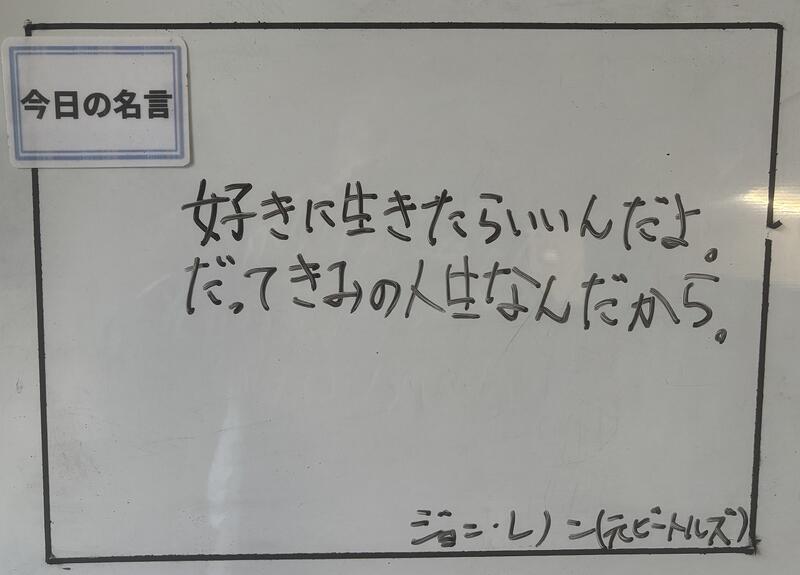 今日の名言
好きに生きたらいいんだよ。
だってきみの人生なんだから。
ジョン・レノン(元ビートルズ)